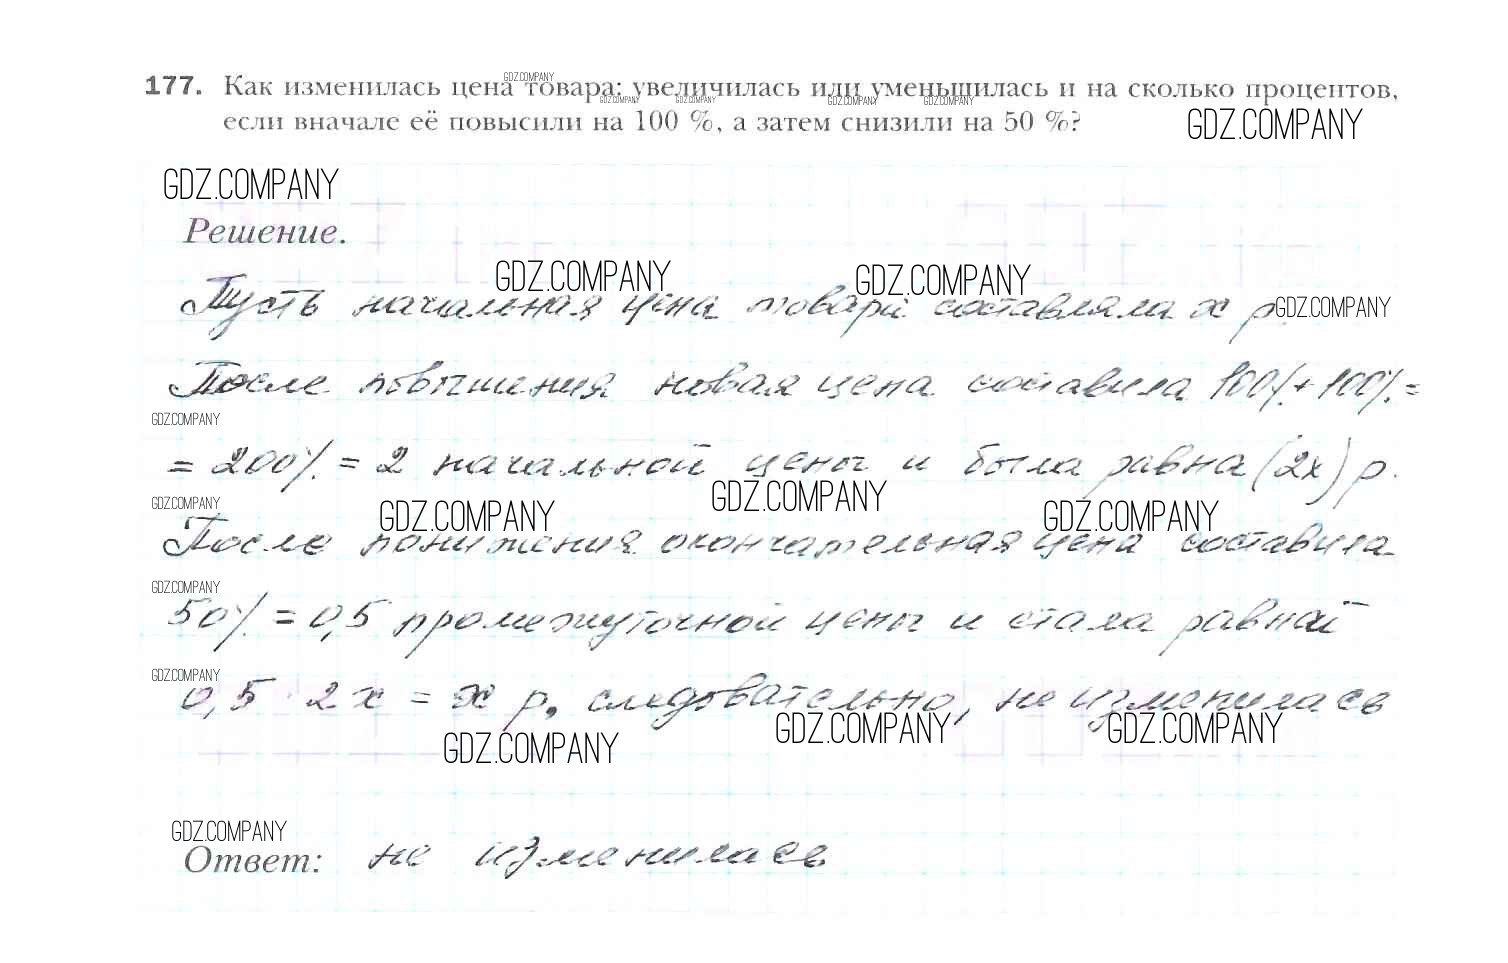 177. Как изменилась цена товара: увеличилась или уменьшилась и на сколько процентов,
если вначале её повысили на 100 %, а затем снизили на 50 %?
GDZ.COMPANY
GDZ.COMPANY
GDZ.COMPANY
GDZ.COMPANY
GDZ.COMPANY
GDZ.COMPANY
GDZ.COMPANY
Решение.
GDZ.COMPANY
GDZ.COMPANY
Пусть начальная цена товара составляла x р.
GDZ.COMPANY
После повышения новая цена составила 100%+100%=
GDZ.COMPANY
=200%=2 начальной цены и была равна (2x) р.
GDZ.COMPANY
GDZ.COMPANY
GDZ.COMPANY
GDZ.COMPANY
После понижения окончательная цена составила
GDZ.COMPANY
50%=0,5 промежуточной цены и стала равной
GDZ.COMPANY
0,5·2x=x р, следовательно, не изменилась
GDZ.COMPANY
GDZ.COMPANY
GDZ.COMPANY
GDZ.COMPANY
Ответ: не изменилась